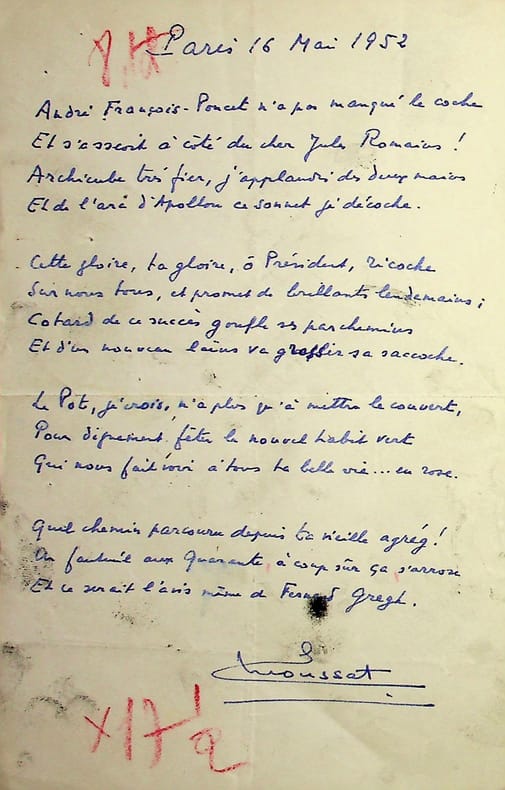 Paris 16 Mai 1952
André François-Poncet n'a pas manqué le coche
Et s'asseoit à côté du cher Jules Romains !
Archicube très fier, j'applaudis des deux mains
Et de l'arc d'Apollon ce sonnet je décoche.
Cette gloire, ta gloire, ô Président, ricoche
Sur nous tous, et promet de brillants lendemains ;
Cotard de ce succès gonfle ses parchemins
Et d'un nouveau laïus va grossir sa sacoche.
Le Pot, je crois, n'a plus qu'à mettre le couvert,
Pour dignement fêter le nouvel habit vert
Qui nous fait voir à tous ta belle vie... en rose.
Quel chemin parcouru depuis ta vieille agrég !
Un fauteuil aux Quarante, à coup sûr ça s'arrose
Et ce serait l'avis même de Fernand Gregh.
X17